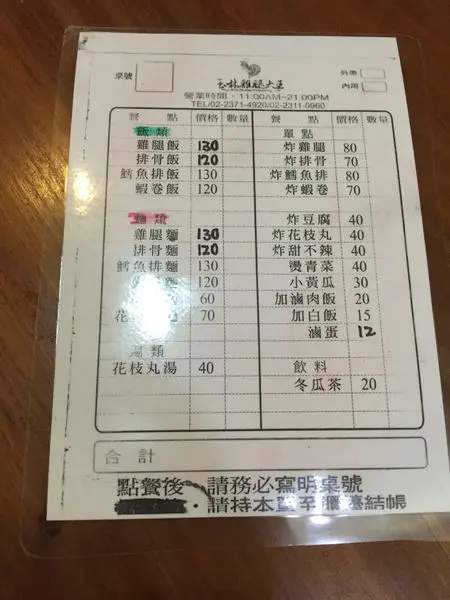 桌號
玉林雞腿大王
外帶
內用
營業時間：11:00AM~21:00PM
TEL/02-2371-4920/02-2311-0960
餐 點 價格 數量 餐 點 價格 數量
飯 類 單 點
雞腿飯 130 炸雞腿 80
排骨飯 120 炸排骨 70
鱈魚排飯 130 炸鱈魚排 80
蝦卷飯 120 炸蝦卷 70
麵 類 炸豆腐 40
雞腿麵 130 炸花枝丸 40
排骨麵 120 炸甜不辣 40
鱈魚排麵 130 燙青菜 40
120 小黃瓜 30
60 加滷肉飯 20
花 70 加白飯 15
滷蛋 12
湯 類 飲 料
花枝丸湯 40 冬瓜茶 20
合 計
點餐後 請務必寫明桌號
請持本單至櫃檯結帳